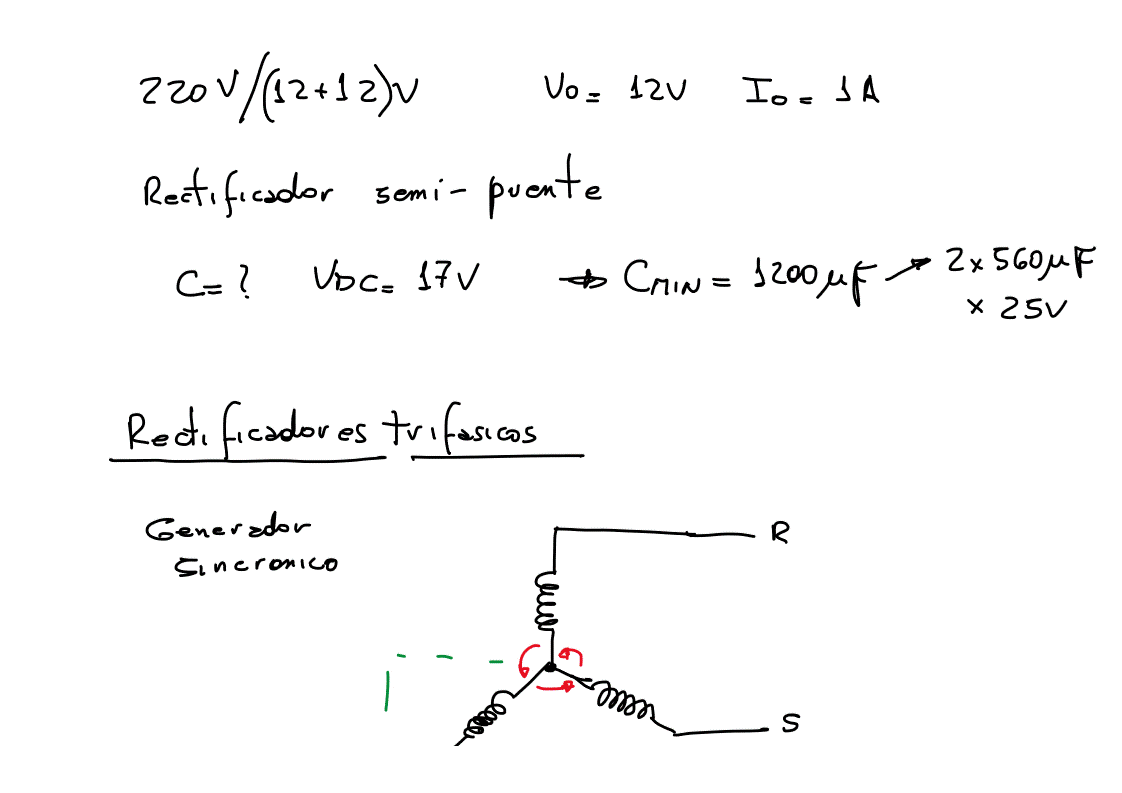 220V/(12+12)V Vo= 12V Io= 1A
Rectificador semi-puente
C=? VDC= 17V → CMIN = 1200μF → 2x560μF
x 25V
Rectificadores trifasicos
Generador
sincronico
R
S